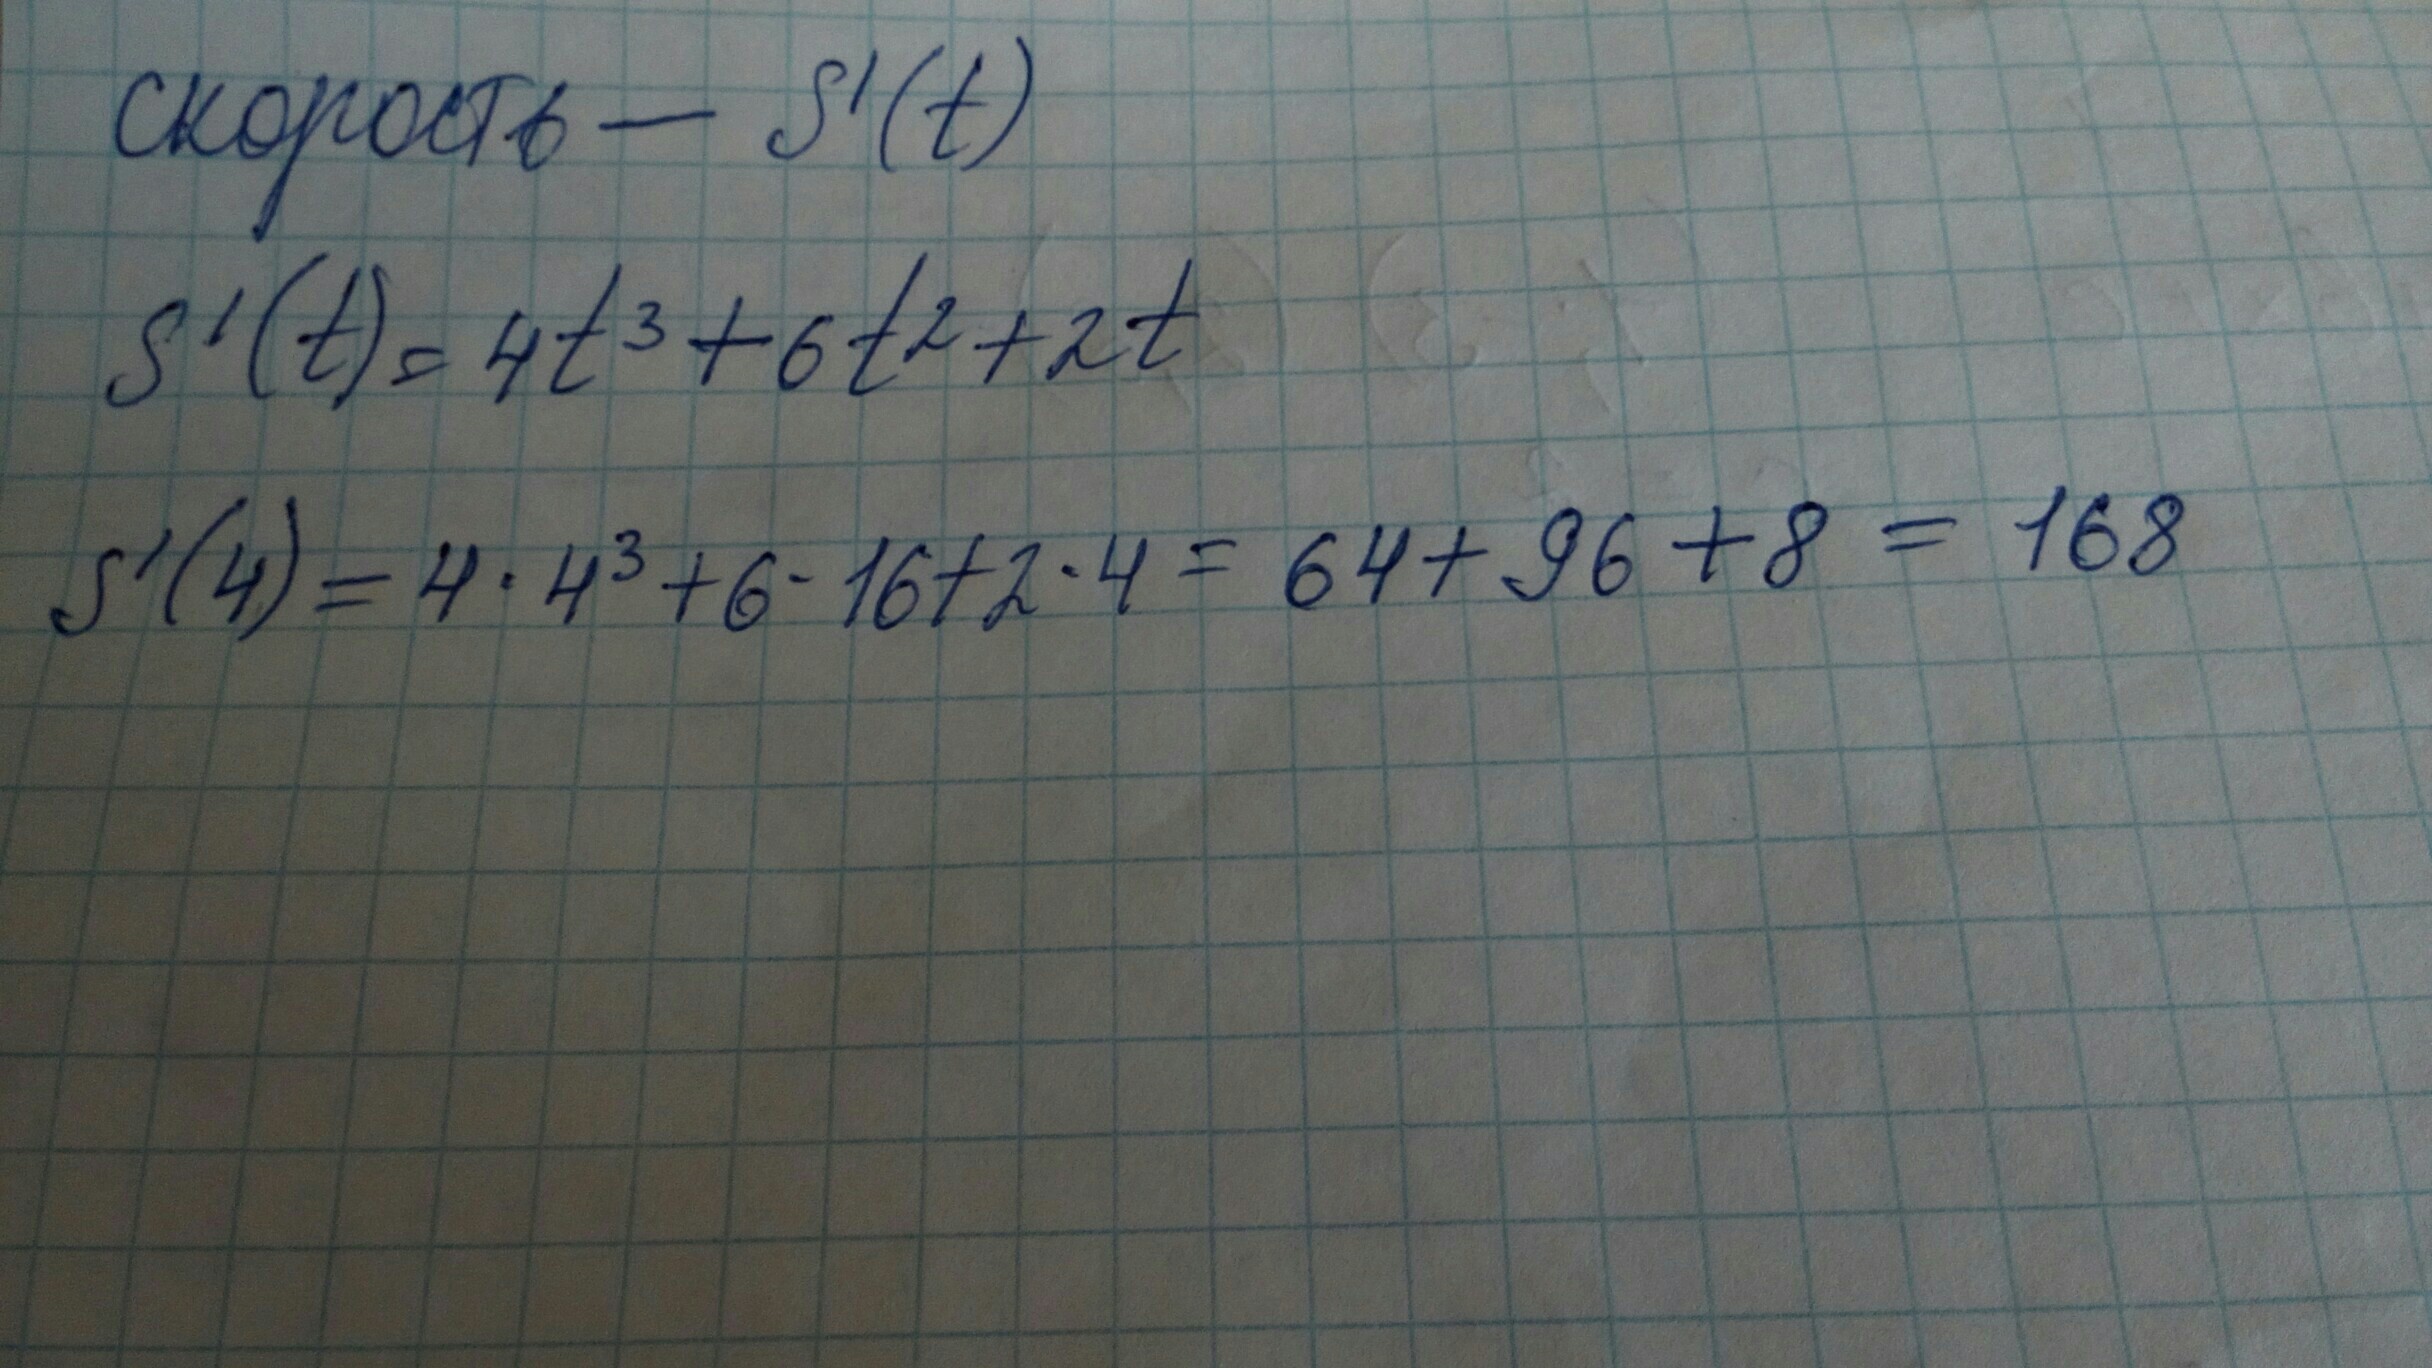 скорость — S'(t)
S'(t) = 4t³ + 6t² + 2t
S'(4) = 4 · 4³ + 6 · 16 + 2 · 4 = 64 + 96 + 8 = 168